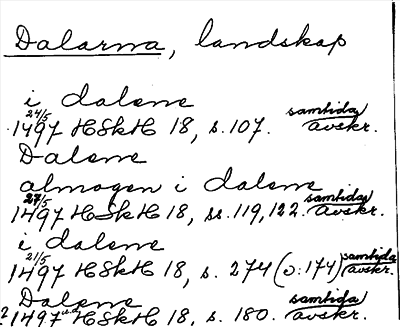 Dalarna, landskap
i dalene
24/5 1497 HSkH 18, s. 107. samtida avskr.
Dalene
almogen i dalene
27/5 1497 HSkH 18, ss. 119, 122. samtida avskr.
i dalene
21/5 1497 HSkH 18, s. 274 (ɔ: 174) samtida avskr.
Dalene
1497 HSkH 18, s. 180. samtida avskr.